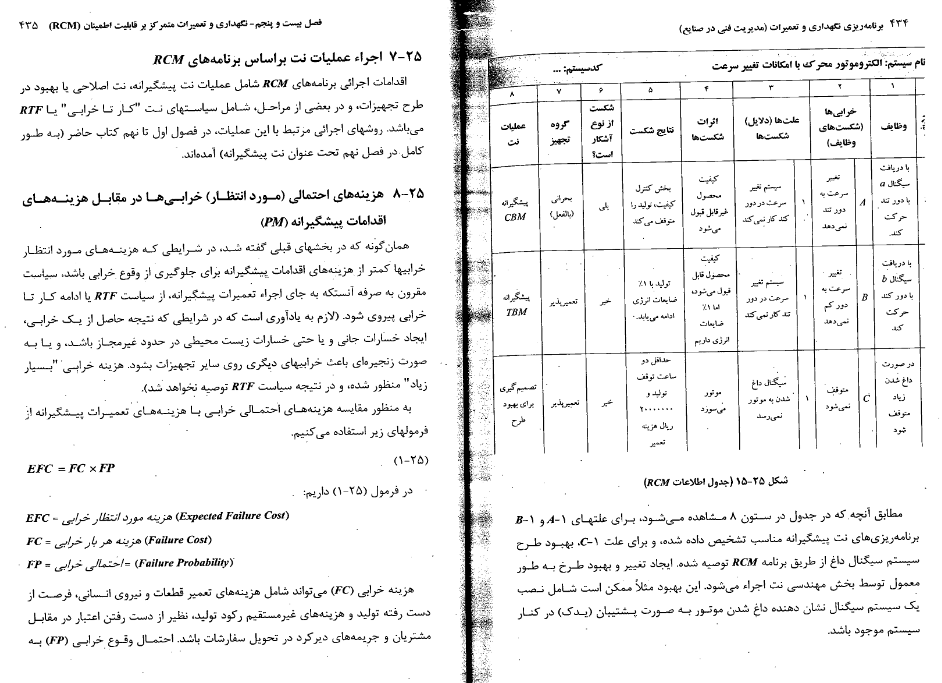 ۴۳۴ برنامه‌ریزی نگهداری و تعمیرات (مدیریت فنی در صنایع)
نام سیستم: الکتروموتور محرک با امکانات تغییر سرعت کدسیستم: ...
۱ ۲ ۳ ۴ ۵ ۶ ۷ ۸
وظایف
خرابی‌ها (شکست‌های وظایف)
علت‌ها (دلایل) شکست‌ها
اثرات شکست‌ها
نتایج شکست
شکست از نوع آشکار است؟
گروه تجهیز
عملیات نت
با دریافت سیگنال a با دور تند حرکت کند.
A
تغییر سرعت به دور تند نمی‌دهد
۱
سیستم تغییر سرعت در دور کند کار نمی‌کند
کیفیت محصول غیرقابل قبول می‌شود
بخش کنترل کیفیت، تولید را متوقف می‌کند
بلی
بحرانی (بالفعل)
پیشگیرانه CBM
با دریافت سیگنال b با دور کند حرکت کند
B
تغییر سرعت به دور کم نمی‌دهد
۱
سیستم تغییر سرعت در دور تند کار نمی‌کند
کیفیت محصول قابل قبول می‌شود، اما ۱٪ ضایعات انرژی داریم
تولید با ۱٪ ضایعات انرژی ادامه می‌یابد.
خیر
تعمیرپذیر
پیشگیرانه TBM
در صورت داغ شدن زیاد متوقف شود
C
متوقف نمی‌شود
۱
سیگنال داغ شدن به موتور نمی‌رسد
موتور می‌سوزد
حداقل دو ساعت توقف تولید و ۲۰۰۰۰۰۰۰ ریال هزینه تعمیر
خیر
تعمیرپذیر
تصمیم‌گیری برای بهبود طرح
شکل ۲۵-۱۵ (جدول اطلاعات RCM)
مطابق آنچه که در جدول در ستون ۸ مشاهده می‌شود، برای علتهای A-۱ و B-۱
برنامه‌ریزی‌های نت پیشگیرانه مناسب تشخیص داده شده، و برای علت C-۱، بهبود طرح
سیستم سیگنال داغ از طریق برنامه RCM توصیه شده. ایجاد تغییر و بهبود طرح به طور
معمول توسط بخش مهندسی نت اجراء می‌شود. این بهبود مثلاً ممکن است شامل نصب
یک سیستم سیگنال نشان دهنده داغ شدن موتور به صورت پشتیبان (یدک) در کنار
سیستم موجود باشد.
فصل بیست و پنجم- نگهداری و تعمیرات متمرکز بر قابلیت اطمینان (RCM) ۴۳۵
۲۵-۷ اجراء عملیات نت براساس برنامه‌های RCM
اقدامات اجرائی برنامه‌های RCM شامل عملیات نت پیشگیرانه، نت اصلاحی یا بهبود در
طرح تجهیزات، و در بعضی از مراحل، شامل سیاستهای نت "کار تا خرابی" یا RTF
می‌باشد. روشهای اجرائی مرتبط با این عملیات، در فصول اول تا نهم کتاب حاضر (به طور
کامل در فصل نهم تحت عنوان نت پیشگیرانه) آمده‌اند.
۲۵-۸ هزینه‌های احتمالی (مورد انتظار) خرابی‌ها در مقابل هزینه‌های
اقدامات پیشگیرانه (PM)
همان‌گونه که در بخشهای قبلی گفته شد، در شرایطی که هزینه‌های مورد انتظار
خرابیها کمتر از هزینه‌های اقدامات پیشگیرانه برای جلوگیری از وقوع خرابی باشد، سیاست
مقرون به صرفه آنستکه به جای اجراء تعمیرات پیشگیرانه، از سیاست RTF یا ادامه کار تا
خرابی پیروی شود. (لازم به یادآوری است که در شرایطی که نتیجه حاصل از یک خرابی،
ایجاد خسارات جانی و یا حتی خسارات زیست محیطی در حدود غیرمجاز باشد، و یا به
صورت زنجیره‌ای باعث خرابیهای دیگری روی سایر تجهیزات بشود. هزینه خرابی "بسیار
زیاد" منظور شده، و در نتیجه سیاست RTF توصیه نخواهد شد).
به منظور مقایسه هزینه‌های احتمالی خرابی با هزینه‌های تعمیرات پیشگیرانه از
فرمولهای زیر استفاده می‌کنیم.
(۲۵-۱) EFC = FC × FP
در فرمول (۲۵-۱) داریم:
EFC = هزینه مورد انتظار خرابی (Expected Failure Cost)
FC = هزینه هر بار خرابی (Failure Cost)
FP = احتمالی خرابی = (Failure Probability)
هزینه خرابی (FC) می‌تواند شامل هزینه‌های تعمیر قطعات و نیروی انسانی، فرصت از
دست رفته تولید و هزینه‌های غیرمستقیم رکود تولید، نظیر از دست رفتن اعتبار در مقابل
مشتریان و جریمه‌های دیرکرد در تحویل سفارشات باشد. احتمال وقوع خرابی (FP) به